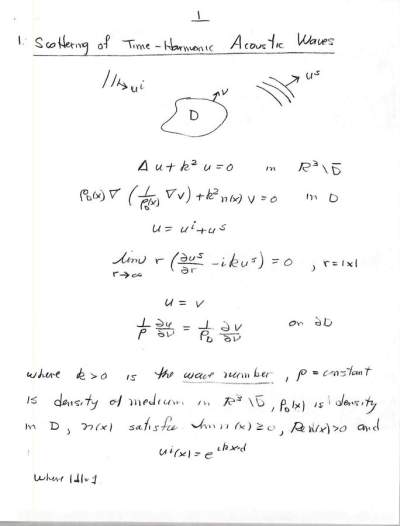 1
1. Scattering of Time-Harmonic Acoustic Waves
uⁱ
ν
uˢ
D
Δu + k²u = 0 in R³\D̅
ρ_D(x) ∇ (1/ρ_D(x) ∇v) + k² n(x) v = 0 in D
u = uⁱ + uˢ
lim r→∞ r (∂uˢ/∂r - ikuˢ) = 0 , r = |x|
u = v
1/ρ ∂u/∂ν = 1/ρ_D ∂v/∂ν on ∂D
where k > 0 is the wave number, ρ = constant
is density of medium in R³\D̅, ρ_D(x) is density
in D, n(x) satisfies Im n(x) ≥ 0, Re n(x) > 0 and
uⁱ(x) = e^{ikx·d}
where |d| = 1